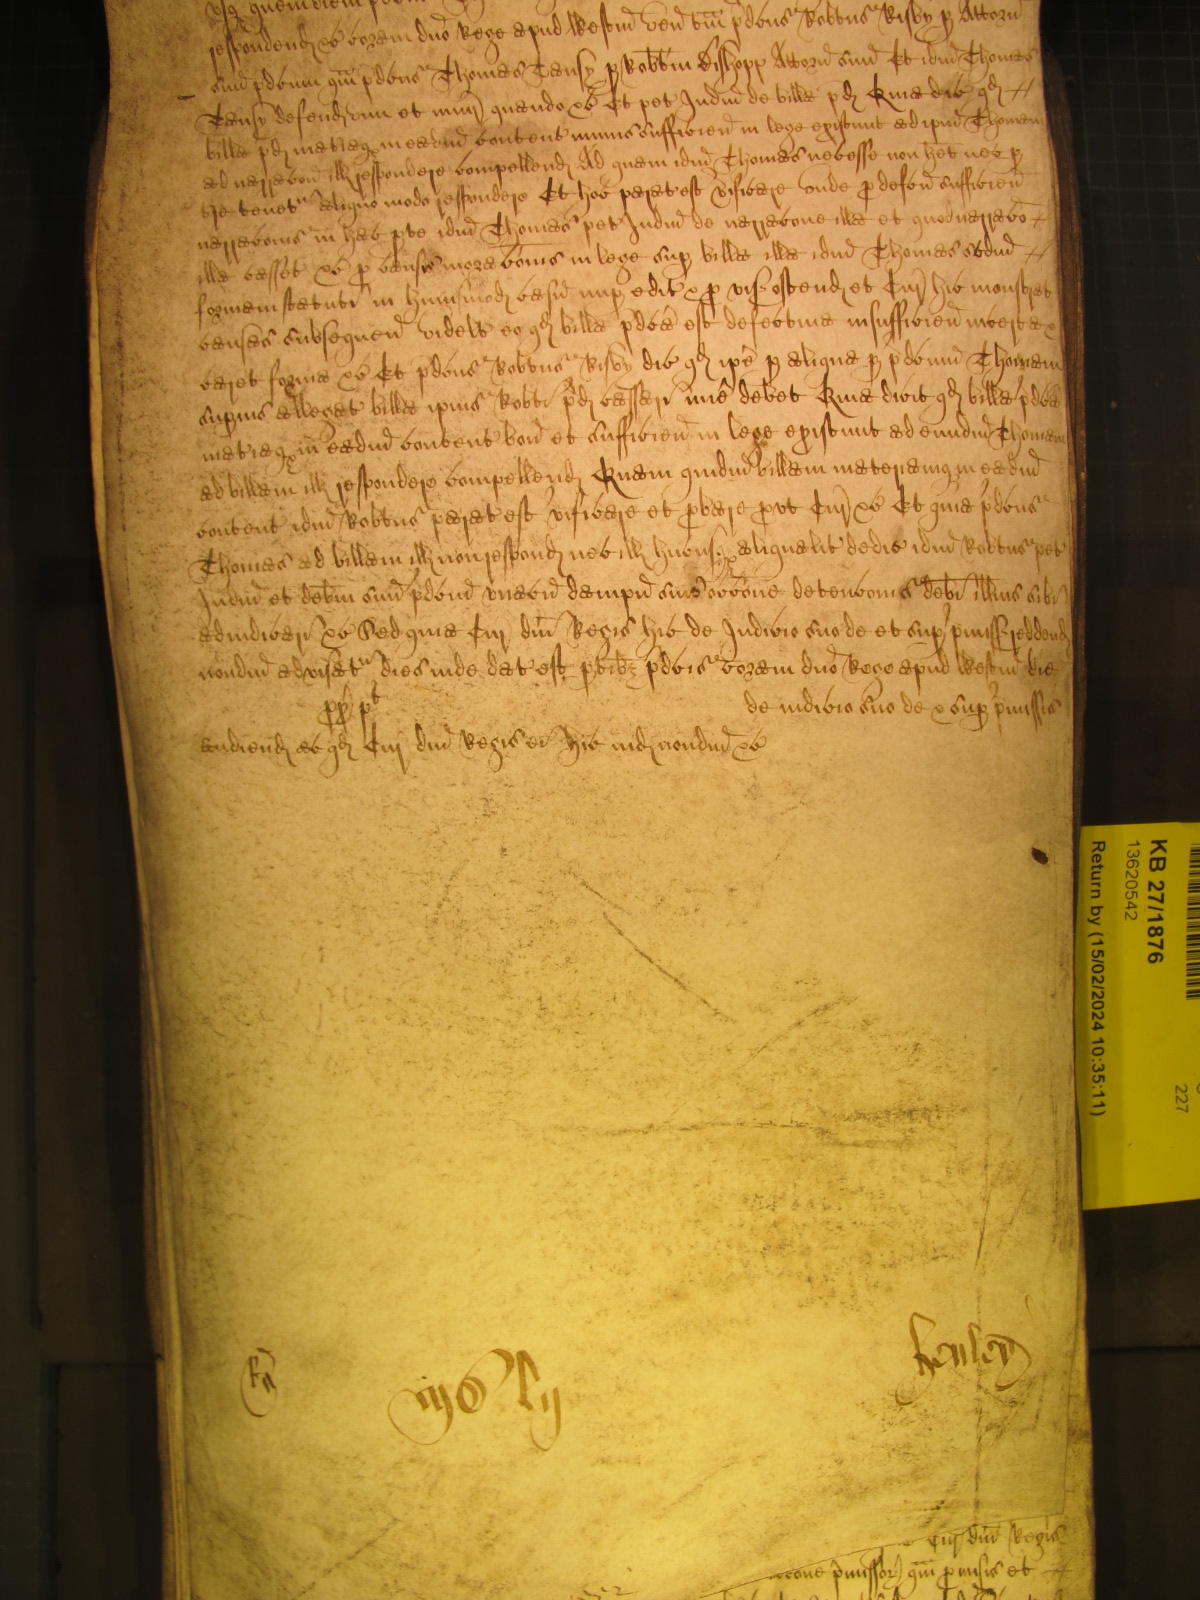 respondend xc coram dno Rege apud Westm ven tam pdcus Robtus Risby p Attorn
suu pdcum qm pdcus Thomas Tansy p Robtm Bishopp Attorn suu Et idm Thomas
Tansy defend vim et iniur quando xc Et pet Judm de billa pd Quia dic qd
billa pd matiaq in eadm content minus sufficien in lege existunt ad ipm Thomam
ad narracoem ill respondere compellend Ad quam idm Thomas necesse non het nec p
tre tenet aliquo modo respondere Et hoc parat est vificare unde p defcu sufficien
narracois in hac pte idm Thomas pet Judm de narracone illa et quod narraco
illa casset xc p causis moracois in lege sup billa illa idm Thomas scdm
formam statuti in huiusmodi casu nup edit x p vis ostend et Cur hic monstrat
causas subsequen videlt eo qd billa pdca est defectiva insufficien incerta x
caret forma xc Et pdcus Robtus Risby dic qd ipe p aliqua p pdcum Thomam
supius allegat billa ipius Robti pd cassari mie debet Quia dicit qd billa pdca
matiaq in eadm content bon et sufficien in lege existunt ad eundm Thomam
ad billam ill respondere compellend Quam quidm billam materiamq in eadm
content idm Robtus parat est vificare et pbare put Cur xc Et quia pdcus
Thomas ad billam ill non respond nec ill hucusq aliqualit dedic idm Robtus pet
Judm et debm suu pdcm unacu dampn suis occone detencois debi illius sibi
adiudicari xc Sed quia Cur dni Regis hic de Judicio suo de et sup pmiss reddend
nondm advisat dies inde dat est ptibz pdcis coram dno Rege apud Westm die
de iudicio suo de x sup pmissis
audiend eo qd Cur dni Regis hic ind nondm xc
KB 27/1876
13620542
Return by (15/02/2024 10:35:11)
227
Henley
Cur dni Regis
pmissor qm pmisis et